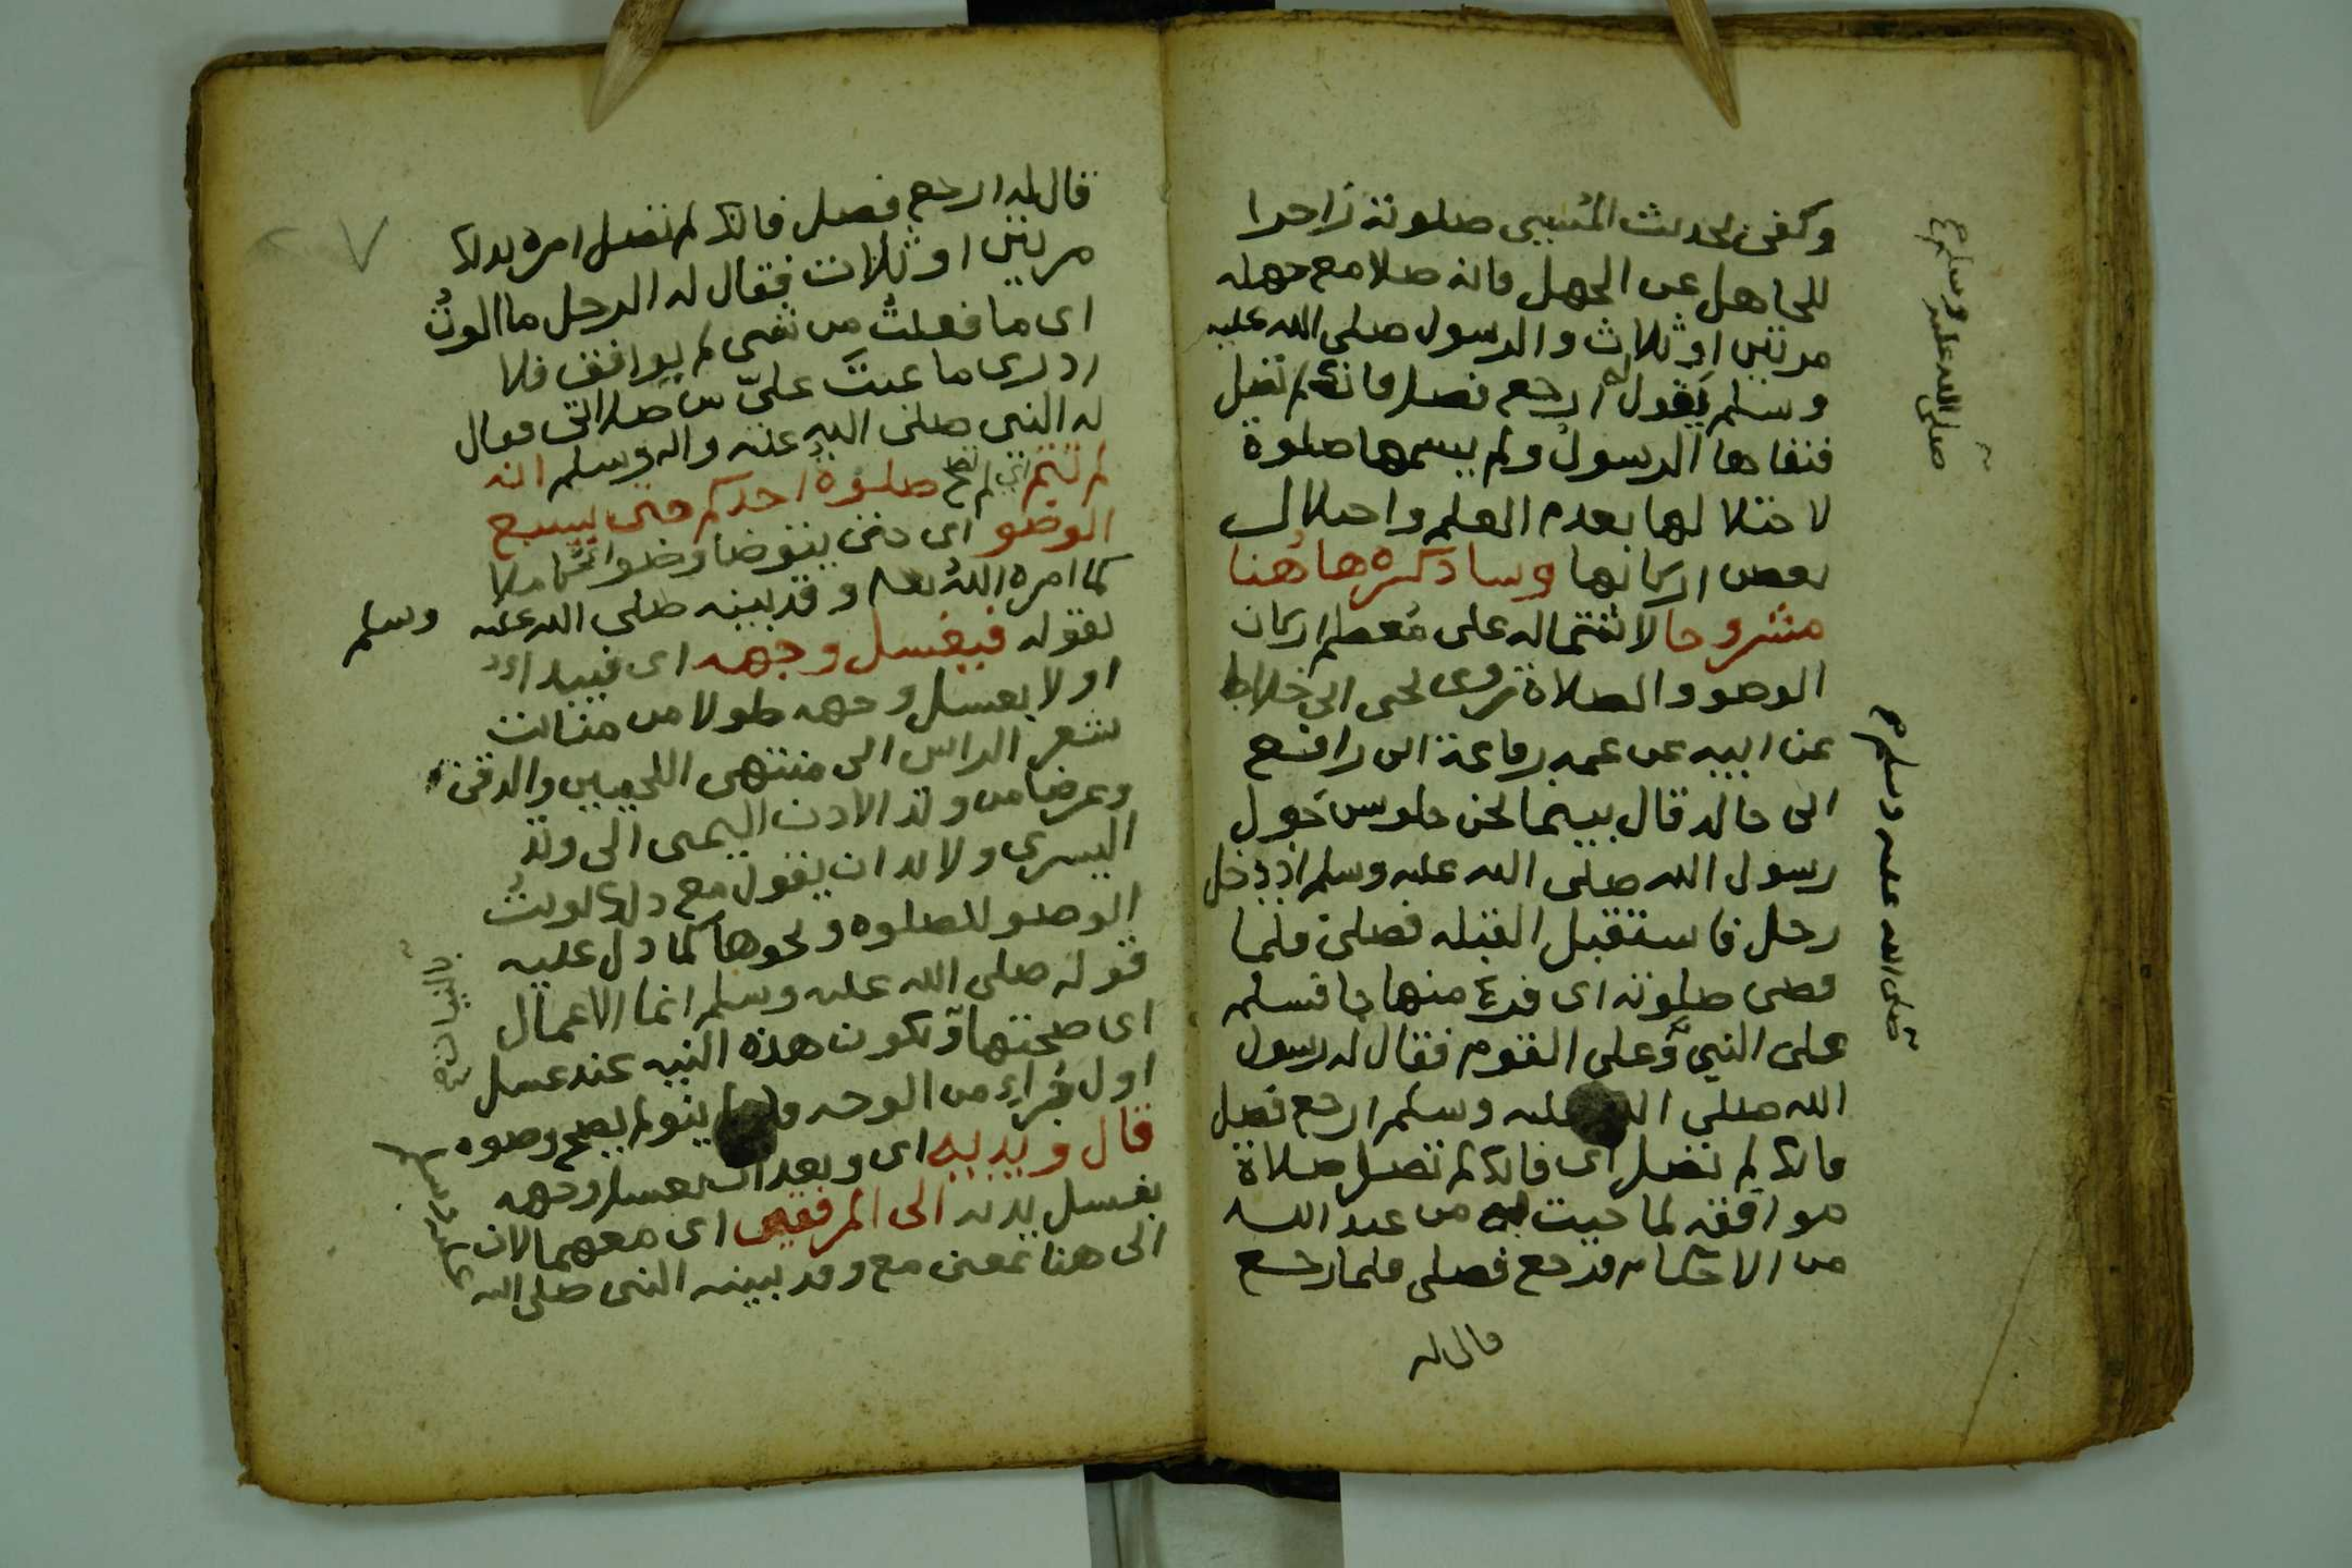 وكفى بحديث المسيى صلوته زاجرا
للجاهل عن الجهل فانه صلا مع جهله
مرتين او ثلاث والرسول صلى الله عليه
وسلم يقول له ارجع فصل فانك لم تصل
فنفاها الرسول ولم يسمها صلوة
لاختلالها بعدم العلم واختلال
بعض اركانها وساذكره هاهنا
مشروحا لاشتماله على معظم اركان
الوضو والصلاة روى يحيى ابن خلاد
عن ابيه عن عمه رفاعة ابن رافع
ابن مالك قال بينما نحن جلوس حول
رسول الله صلى الله عليه وسلم اذ دخل
رجل فاستقبل القبله فصلى فلما
قضى صلوته اى فرغ منها جا فسلم
على النبي وعلى القوم فقال له رسول
الله صلى الله عليه وسلم ارجع فصل
فانك لم تصل اى فانك لم تصل صلاة
موافقه لما جيت به من عند الله
من الاحكام فرجع فصلى فلما رجع
قال له
صلى الله عليه وسلم
صلى الله عليه وسلم
قال له ارجع فصل فانك لم تصل امره بذلك
مرتين او ثلاث فقال له الرجل ما الوت
اى ما فعلت من شى لم يوافق فلا
ادرى ما عبت علي من صلاتى فقال
له النبى صلى الله عليه واله وسلم انه
لم تتم اي لم تصح صلوة احدكم حتى يسبع
الوضو اى حتى يتوضا وضوا كاملا
كما امره الله تعا وقد بينه صلى الله عليه وسلم
بقوله فيغسل وجهه اى فيبدا
اولا بغسل وجهه طولا من منابت
شعر الراس الى منتهى اللحيين والذقن
وعرضا من وتد الاذن اليمنى الى وتد
اليسرى ولا بد ان يقول مع ذلك نويت
الوضو للصلوه ونحوها كما دل عليه
قوله صلى الله عليه وسلم انما الاعمال
بالنيات
اى صحتها وتكون هذه النيه عند غسل
اول جزاء من الوجه ينو لم يصح وضوه
قال ويديه اى وبعد ان يغسل وجهه
يغسل يديه الى المرفقين اى معهما لان
الى هنا بمعنى مع وقد بينه النبى صلى الله
عليه وسلم